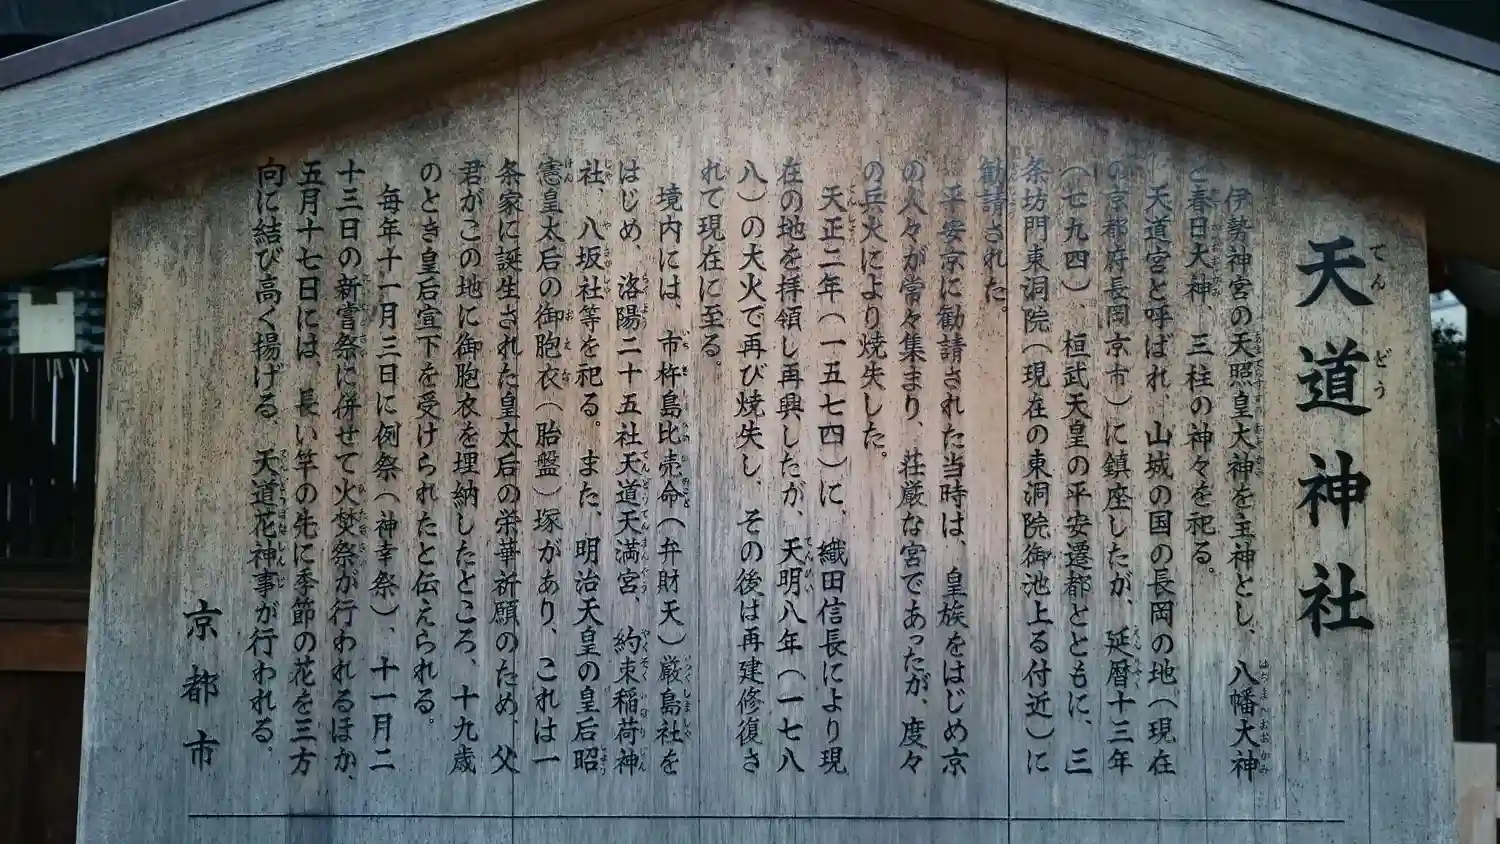 天道神社
伊勢神宮の天照皇大神を主神とし、八幡大神
と春日大神、三柱の神々を祀る。
天道宮と呼ばれ、山城の国の長岡の地（現在
の京都府長岡京市）に鎮座したが、延暦十三年
（七九四）、桓武天皇の平安遷都とともに、三
条坊門東洞院（現在の東洞院御池上る付近）に
勧請された。
平安京に勧請された当時は、皇族をはじめ京
の人々が常々集まり、荘厳な宮であったが、度々
の兵火により焼失した。
天正二年（一五七四）に、織田信長により現
在の地を拝領し再興したが、天明八年（一七八
八）の大火で再び焼失し、その後は再建修復さ
れて現在に至る。
境内には、市杵島比売命（弁財天）厳島社を
はじめ、洛陽二十五社天道天満宮、約束稲荷神
社、八坂社等を祀る。また、明治天皇の皇后昭
憲皇太后の御胞衣（胎盤）塚があり、これは一
条家に誕生された皇太后の栄華祈願のため、父
君がこの地に御胞衣を埋納したところ、十九歳
のとき皇后宣下を受けられたと伝えられる。
毎年十一月三日に例祭（神幸祭）、十一月二
十三日の新嘗祭に併せて火焚祭が行われるほか、
五月十七日には、長い竿の先に季節の花を三方
向に結び高く揚げる、天道花神事が行われる。
京都市